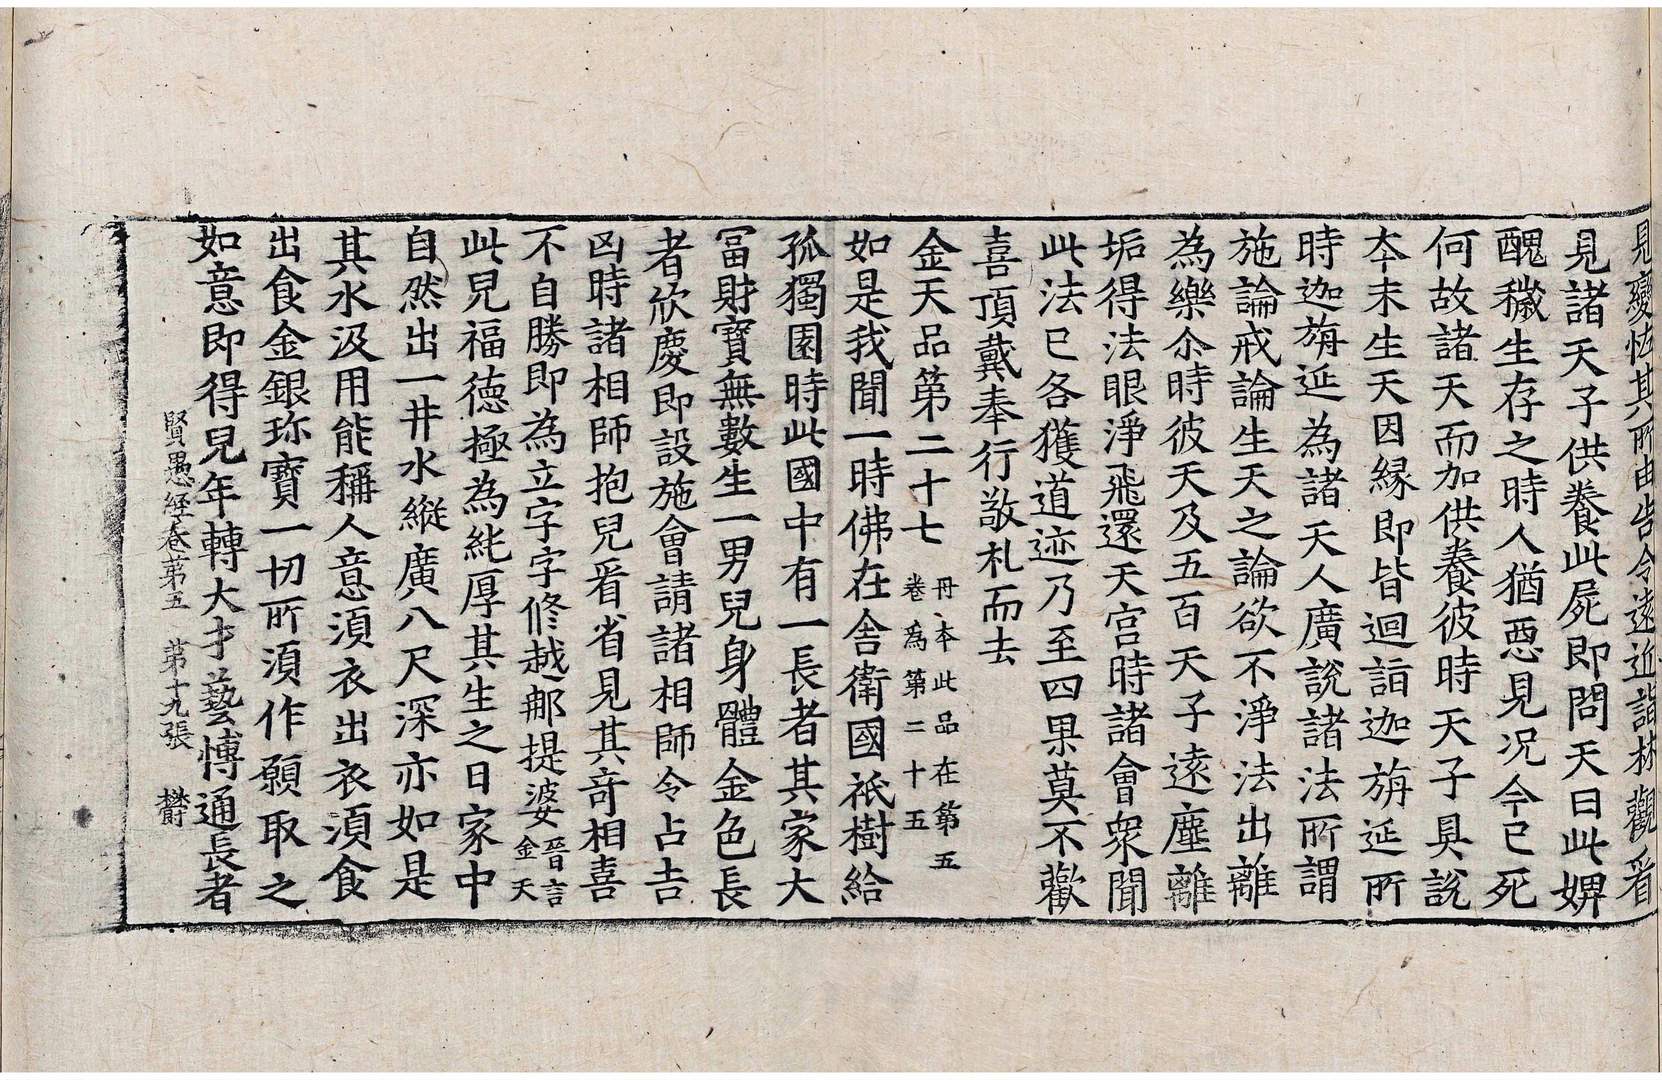 見變怪其所由告令遠近詣林觀看
見諸天子供養此屍即問天曰此婢
醜穢生存之時人猶惡見况今已死
何故諸天而加供養彼時天子具說
夲末生天因緣即皆迴詣迦旃延所
時迦旃延為諸天人廣說諸法所謂
施論戒論生天之論欲不淨法出離
為樂尒時彼天及五百天子遠塵離
垢得法眼淨飛還天宮時諸會衆聞
此法已各獲道迹乃至四果莫不歡
喜頂戴奉行敬札而去
金天品第二十七
丹夲此品在第五
卷為第二十五
如是我聞一時佛在舍衛國祇樹給
孤獨園時此國中有一長者其家大
冨財寶無數生一男兒身體金色長
者欣慶即設施會請諸相師令占吉
凶時諸相師抱兒看省見其竒相喜
不自勝即為立字字修越那提婆
晉言
金天
此兒福德極為純厚其生之日家中
自然出一井水縱廣八尺深亦如是
其水汲用能稱人意湏衣出衣湏食
出食金銀珎寶一切所湏作願取之
如意即得兒年轉大才藝愽通長者
賢愚経卷第五 第十九張 欝